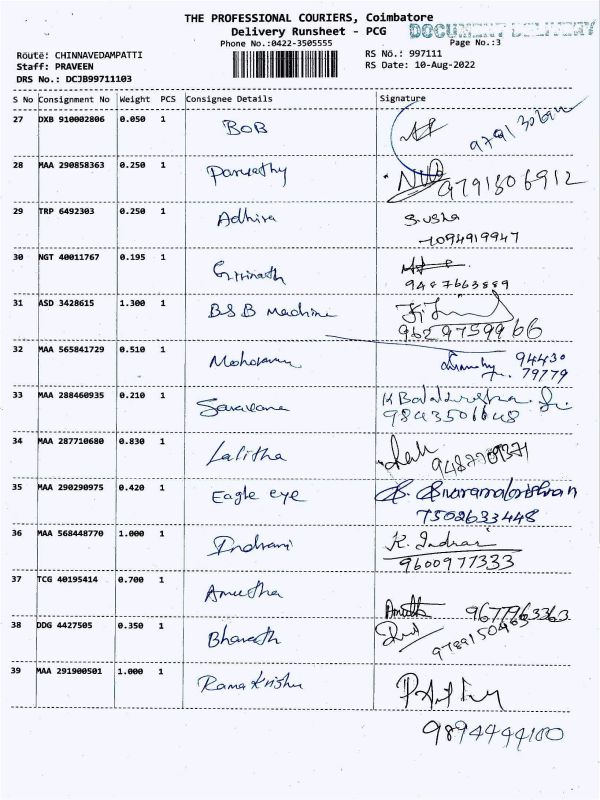 THE PROFESSIONAL COURIERS, Coimbatore
Delivery Runsheet - PCG
DOCUMENT DELIVERY
Phone No.:0422-3505555
Page No.:3
Route: CHINNAVEDAMPATTI
RS No.: 997111
Staff: PRAVEEN
RS Date: 10-Aug-2022
DRS No.: DCJB99711103
S No Consignment No Weight PCS Consignee Details Signature
27 DXB 910002806 0.050 1 BOB
28 MAA 290858363 0.250 1 Parvathy 9791306912
29 TRP 6492303 0.250 1 Adhira S. Usha
7094919947
30 NGT 40011767 0.195 1 Girinath
9487663889
31 ASD 3428615 1.300 1 BSB Machine
9629759966
32 MAA 565841729 0.510 1 94430
79779
33 MAA 288460935 0.210 1 Saravana
9843501648
34 MAA 287710680 0.830 1 Lalitha
35 MAA 290290975 0.420 1 Eagle eye
7502633448
36 MAA 568448770 1.000 1 Indrani K. Indrani
9600977333
37 TCG 40195414 0.700 1 Amutha
9677963363
38 DDG 4427505 0.350 1 Bharath
39 MAA 291900501 1.000 1 Rama Krishn
9894444100